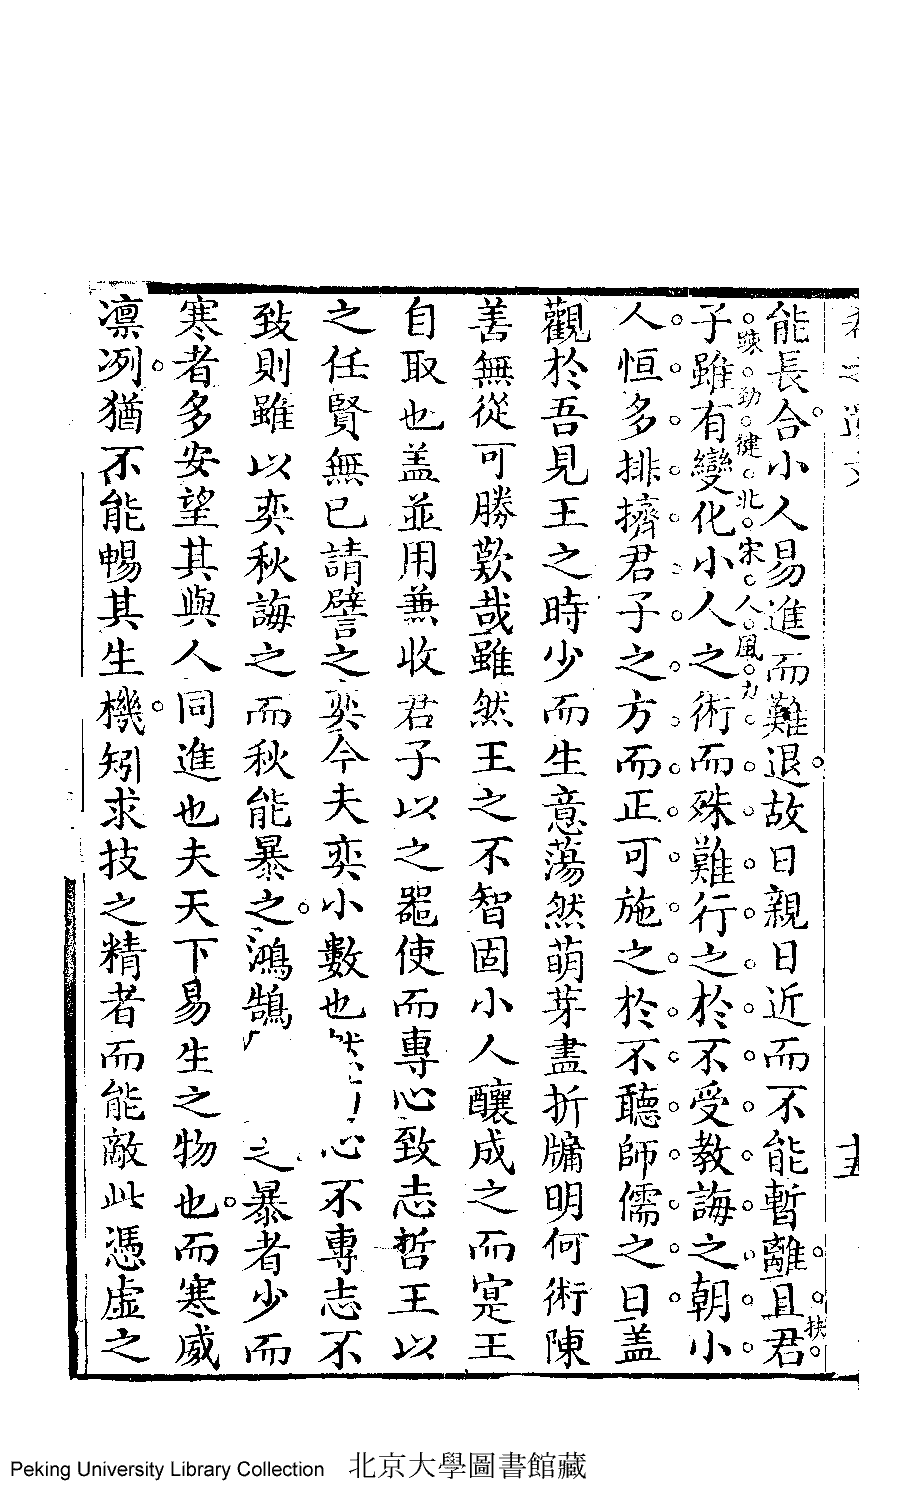 十五
能長合小人易進而難退故日親日近而不能暫離且君
扶
踈勁健北宋人風力
子雖有變化小人之術而殊難行之於不受教誨之朝小
人恒多排擠君子之方而正可施之於不聽師儒之日盖
觀於吾見王之時少而生意蕩然萌芽盡折牖明何術陳
善無從可勝歎哉雖然王之不智固小人釀成之而寔王
自取也盖並用兼收君子以之器使而專心致志哲王以
之任賢無已請譬之奕今夫奕小數也 心不專志不
致則雖以奕秋誨之而秋能暴之鴻鵠 之暴者少而
寒者多安望其與人同進也夫天下易生之物也而寒威
凛冽猶不能暢其生機矧求技之精者而能敵此憑虛之
Peking University Library Collection 北京大學圖書館藏